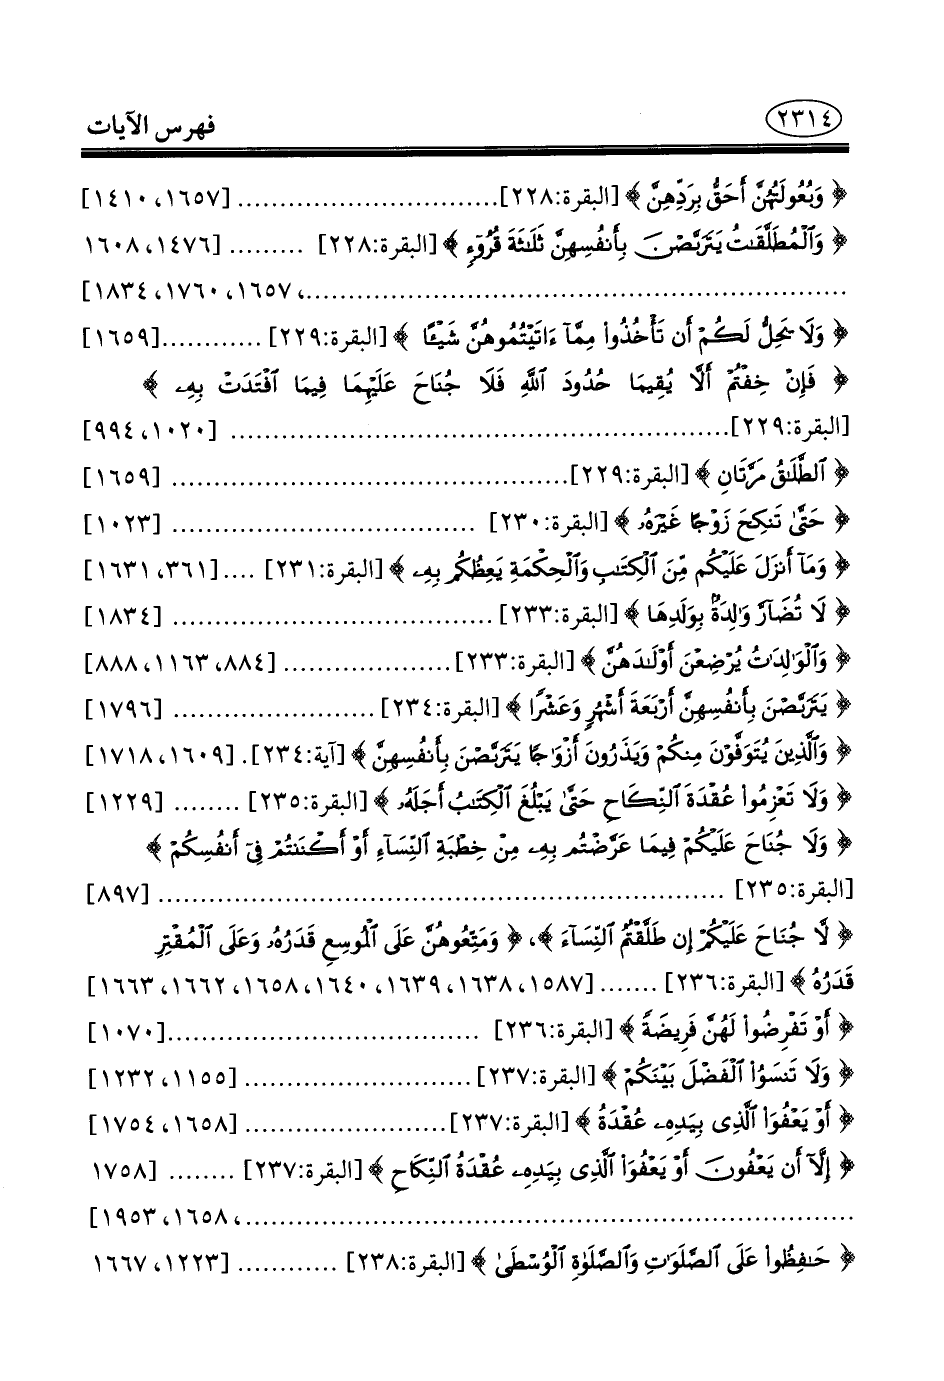 ٢٣١٤
فهرس الآيات
﴿ وَبُعُولَتُهُنَّ أَحَقُّ بِرَدِّهِنَّ ﴾ [البقرة:٢٢٨]............................... [١٦٥٧، ١٤١٠]
﴿ وَٱلْمُطَلَّقَٰتُ يَتَرَبَّصْنَ بِأَنفُسِهِنَّ ثَلَٰثَةَ قُرُوٓءٍ ﴾ [البقرة:٢٢٨] ......... [١٤٧٦، ١٦٠٨
................................................................، ١٦٥٧، ١٧٦٠، ١٨٣٤]
﴿ وَلَا يَحِلُّ لَكُمْ أَن تَأْخُذُوا۟ مِمَّآ ءَاتَيْتُمُوهُنَّ شَيْـًٔا ﴾ [البقرة:٢٢٩] ............[١٦٥٩]
﴿ فَإِنْ خِفْتُمْ أَلَّا يُقِيمَا حُدُودَ ٱللَّهِ فَلَا جُنَاحَ عَلَيْهِمَا فِيمَا ٱفْتَدَتْ بِهِۦ ﴾
[البقرة:٢٢٩]........................................................... [١٠٢٠، ٩٩٤]
﴿ ٱلطَّلَٰقُ مَرَّتَانِ ﴾ [البقرة:٢٢٩]............................................... [١٦٥٩]
﴿ حَتَّىٰ تَنكِحَ زَوْجًا غَيْرَهُۥ ﴾ [البقرة:٢٣٠] .................................... [١٠٢٣]
﴿ وَمَآ أَنزَلَ عَلَيْكُم مِّنَ ٱلْكِتَٰبِ وَٱلْحِكْمَةِ يَعِظُكُم بِهِۦ ﴾ [البقرة:٢٣١] .... [٣٦١، ١٦٣١]
﴿ لَا تُضَآرَّ وَٰلِدَةٌۢ بِوَلَدِهَا ﴾ [البقرة:٢٣٣] ...................................... [١٨٣٤]
﴿ وَٱلْوَٰلِدَٰتُ يُرْضِعْنَ أَوْلَٰدَهُنَّ ﴾ [البقرة:٢٣٣].................... [٨٨٤، ١١٦٣، ٨٨٨]
﴿ يَتَرَبَّصْنَ بِأَنفُسِهِنَّ أَرْبَعَةَ أَشْهُرٍ وَعَشْرًا ﴾ [البقرة:٢٣٤] ........................ [١٧٩٦]
﴿ وَٱلَّذِينَ يُتَوَفَّوْنَ مِنكُمْ وَيَذَرُونَ أَزْوَٰجًا يَتَرَبَّصْنَ بِأَنفُسِهِنَّ ﴾ [آية:٢٣٤]. [١٦٠٩، ١٧١٨]
﴿ وَلَا تَعْزِمُوا۟ عُقْدَةَ ٱلنِّكَاحِ حَتَّىٰ يَبْلُغَ ٱلْكِتَٰبُ أَجَلَهُۥ ﴾ [البقرة:٢٣٥] ........ [١٢٢٩]
﴿ وَلَا جُنَاحَ عَلَيْكُمْ فِيمَا عَرَّضْتُم بِهِۦ مِنْ خِطْبَةِ ٱلنِّسَآءِ أَوْ أَكْنَنتُمْ فِىٓ أَنفُسِكُمْ ﴾
[البقرة:٢٣٥] ................................................................... [٨٩٧]
﴿ لَّا جُنَاحَ عَلَيْكُمْ إِن طَلَّقْتُمُ ٱلنِّسَآءَ ﴾، ﴿ وَمَتِّعُوهُنَّ عَلَى ٱلْمُوسِعِ قَدَرُهُۥ وَعَلَى ٱلْمُقْتِرِ
قَدَرُهُۥ ﴾ [البقرة:٢٣٦] ....... [١٥٨٧، ١٦٣٨، ١٦٣٩، ١٦٤٠، ١٦٥٨، ١٦٦٢، ١٦٦٣]
﴿ أَوْ تَفْرِضُوا۟ لَهُنَّ فَرِيضَةً ﴾ [البقرة:٢٣٦] .....................................[١٠٧٠]
﴿ وَلَا تَنسَوُا۟ ٱلْفَضْلَ بَيْنَكُمْ ﴾ [البقرة:٢٣٧]........................... [١١٥٥، ١٢٣٢]
﴿ أَوْ يَعْفُوَا۟ ٱلَّذِى بِيَدِهِۦ عُقْدَةُ ﴾ [البقرة:٢٣٧]........................ [١٦٥٨، ١٧٥٤]
﴿ إِلَّآ أَن يَعْفُونَ أَوْ يَعْفُوَا۟ ٱلَّذِى بِيَدِهِۦ عُقْدَةُ ٱلنِّكَاحِ ﴾ [البقرة:٢٣٧] ........ [١٧٥٨
........................................................................، ١٦٥٨، ١٩٥٣]
﴿ حَٰفِظُوا۟ عَلَى ٱلصَّلَوَٰتِ وَٱلصَّلَوٰةِ ٱلْوُسْطَىٰ ﴾ [البقرة:٢٣٨] ............ [١٢٢٣، ١٦٦٧